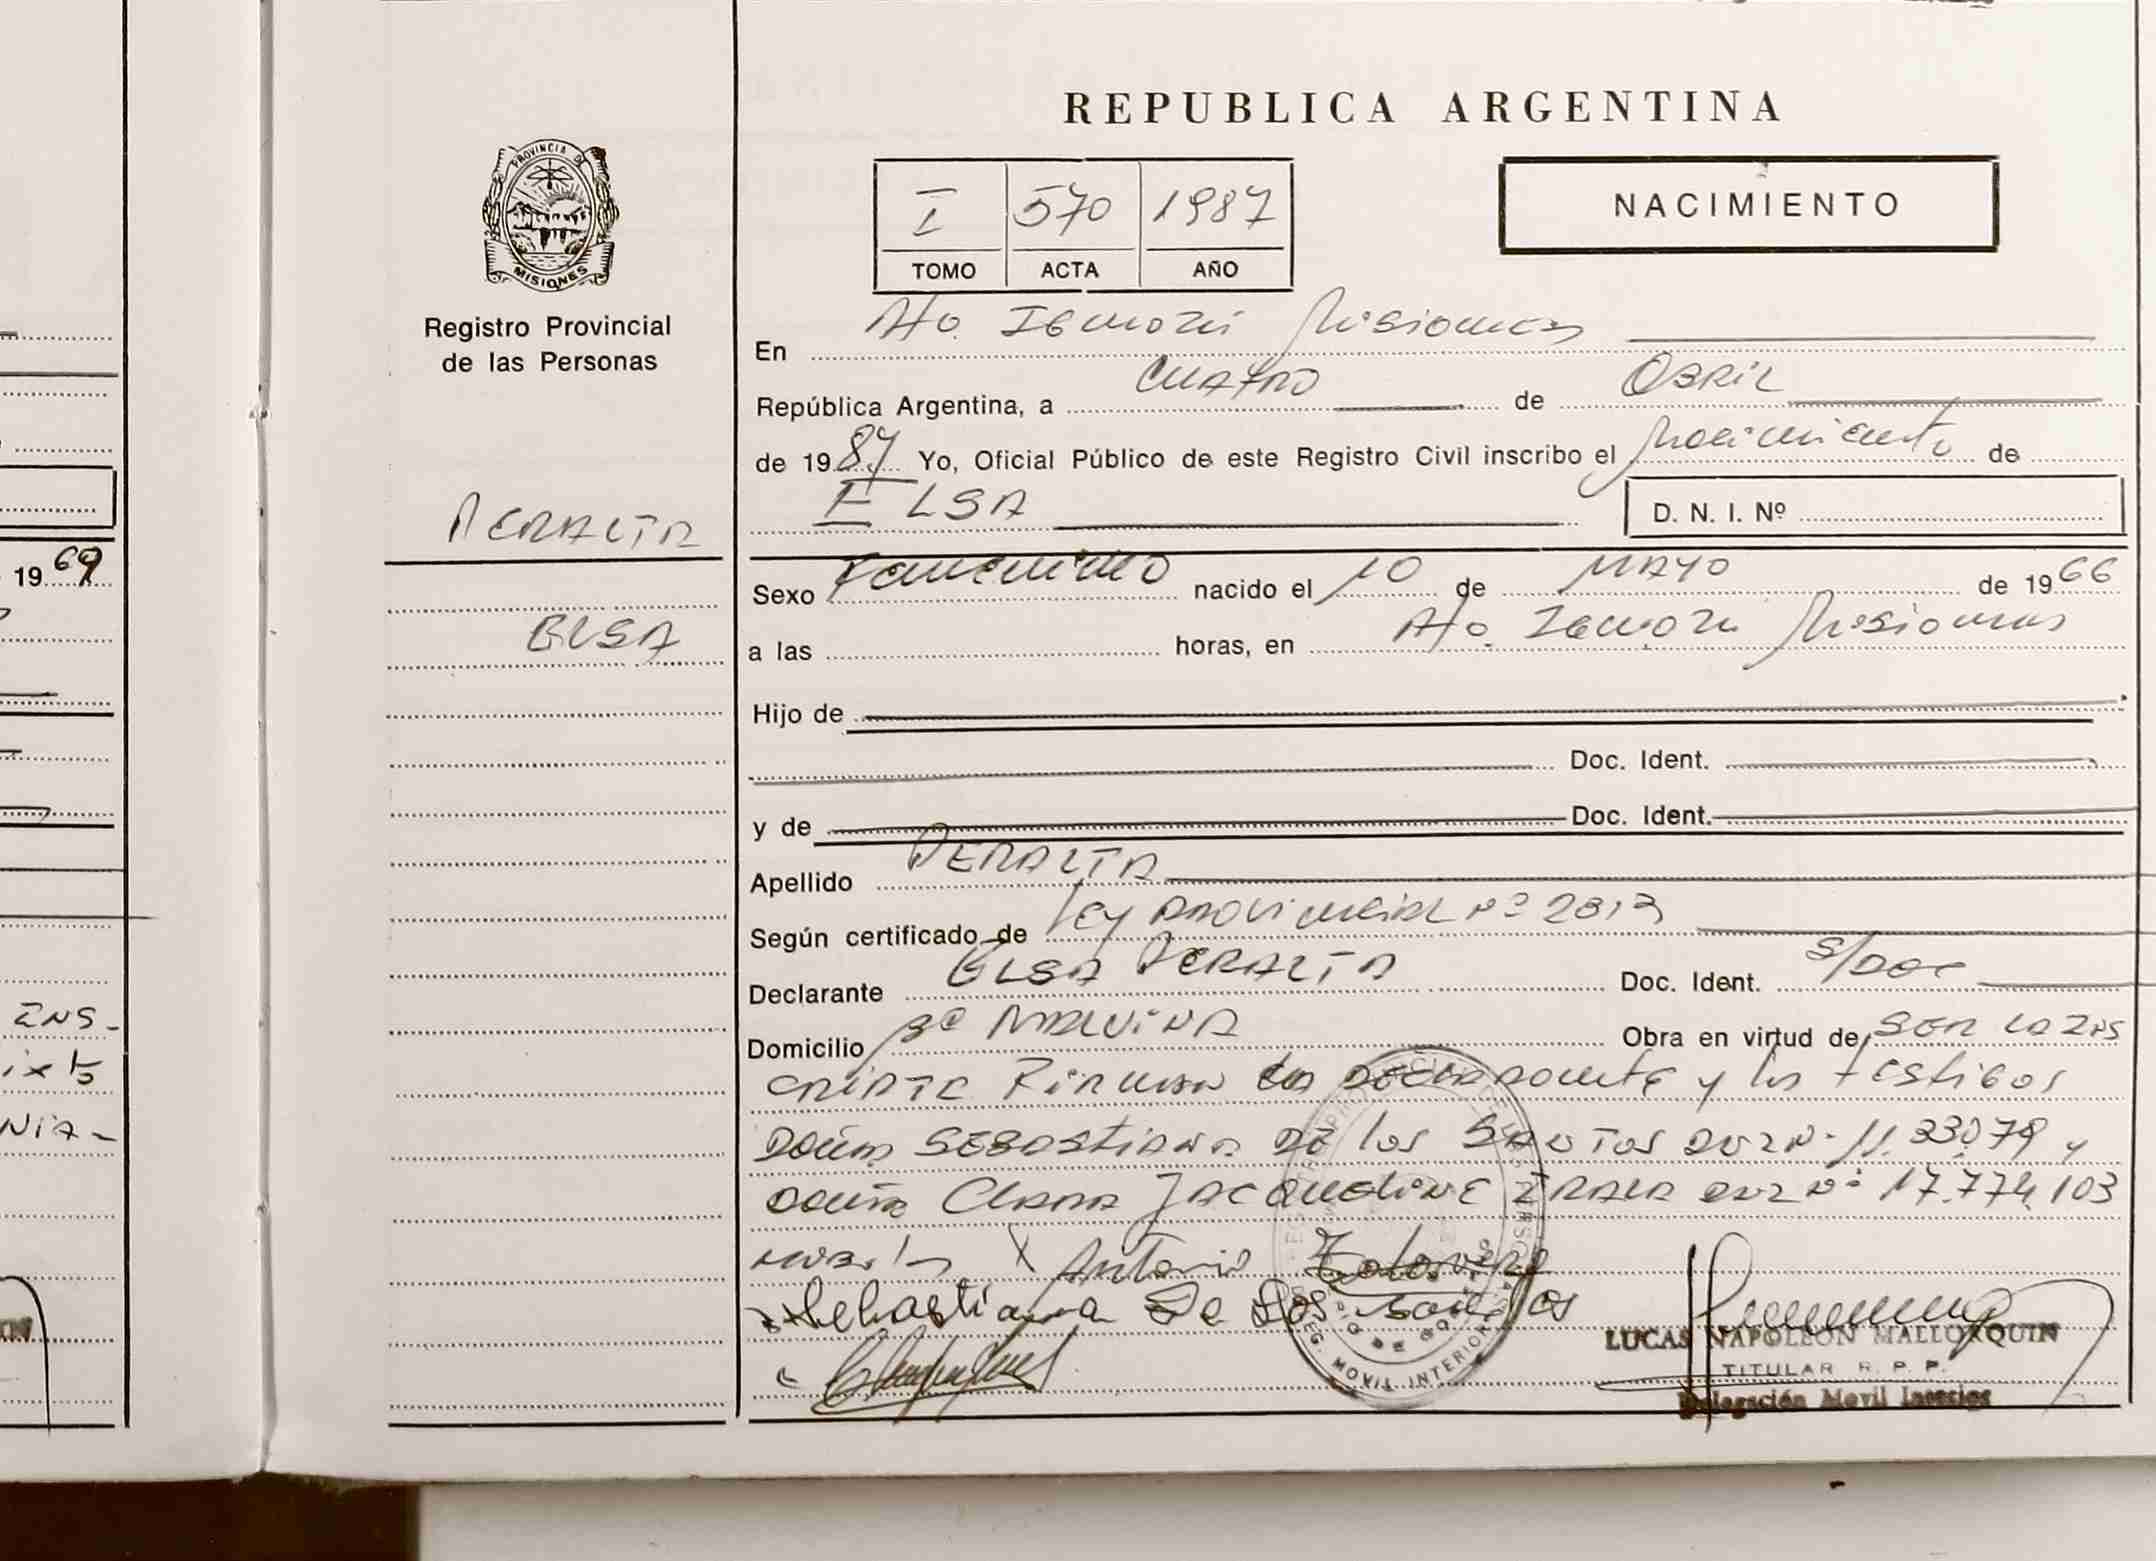 REPUBLICA ARGENTINA
PROVINCIA DE
MISIONES
Registro Provincial
de las Personas
I 570 1987
TOMO ACTA AÑO
NACIMIENTO
En Pto. Iguazú Misiones
República Argentina, a CUATRO de ABRIL
de 1987 Yo, Oficial Público de este Registro Civil inscribo el Nacimiento de
ELSA
D. N. I. Nº
PERALTA
ELSA
Sexo Femenino nacido el 10 de MAYO de 1966
a las horas, en Pto. Iguazú Misiones
Hijo de
Doc. Ident.
y de Doc. Ident.
Apellido PERALTA
Según certificado de Ley PROVINCIAL Nº 2813
Declarante ELSA PERALTA Doc. Ident. S/DOC
Domicilio Bº MALVINA Obra en virtud de SER
Firman la DECLARANTE y los testigos
DOÑA SEBASTIANA DE los SANTOS DNI Nº 11.330.79 y
DOÑA CLARA JACQUELINE IRALA DNI Nº 17.774.103
X Antonio
Sebastiana De Los Santos
REG. MOVIL INTERIOR
LUCAS NAPOLEON MALLORQUIN
TITULAR R. P. P.
Delegación Movil Interior
1969
INS-
ixto
NIA-